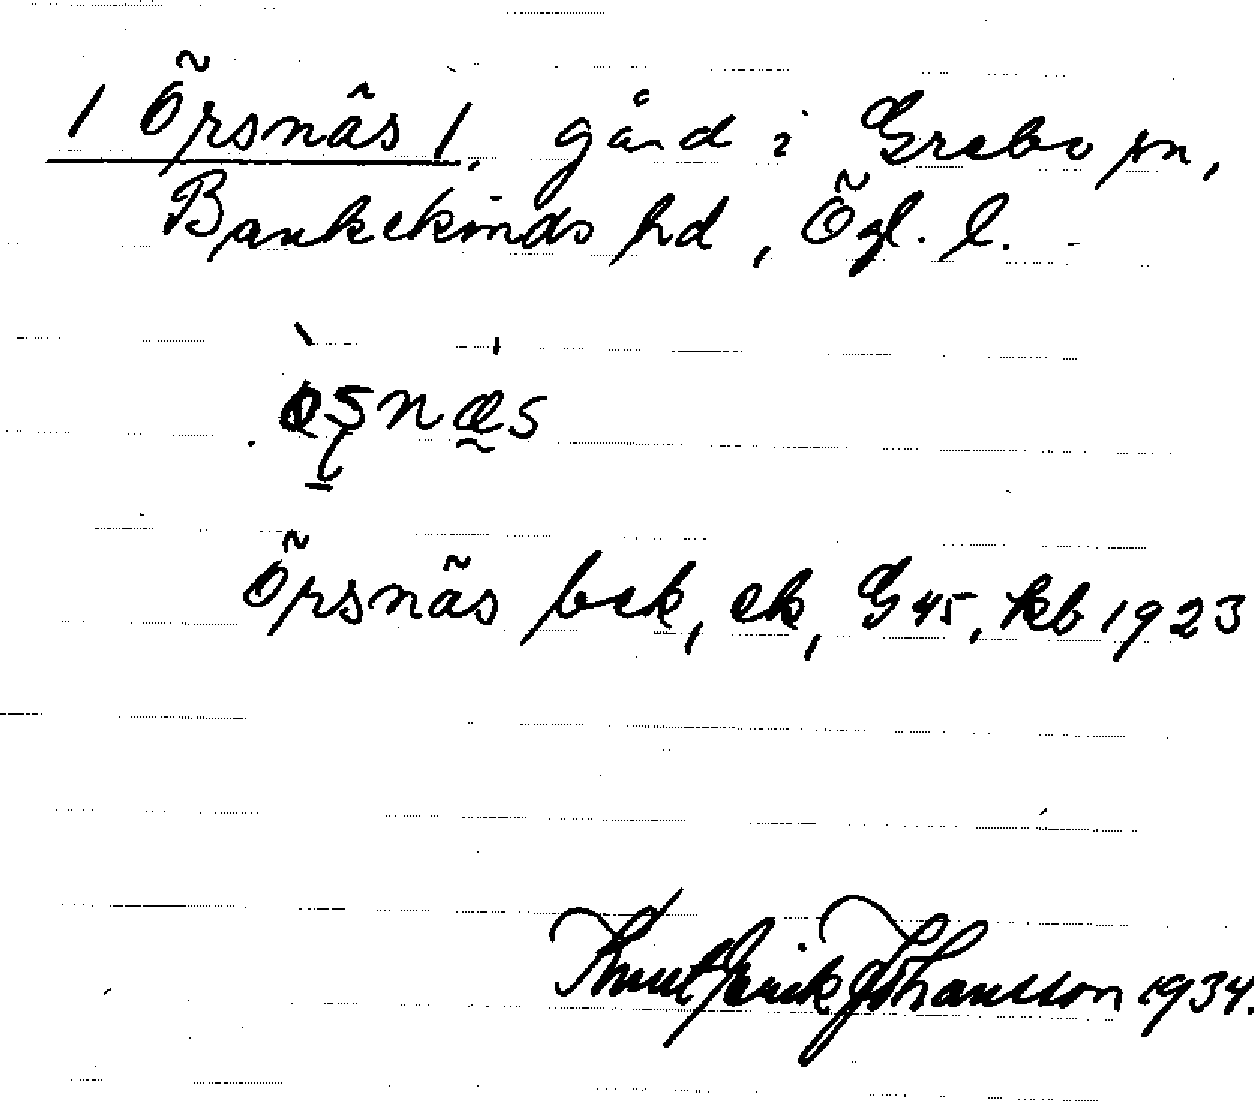 1 Örsnäs 1, gård i Grebo sn,
Bankekinds hd, Ögl. l.
Örsnäs bek, ek, G45, kb 1923
Knut Erik Johansson 1934.